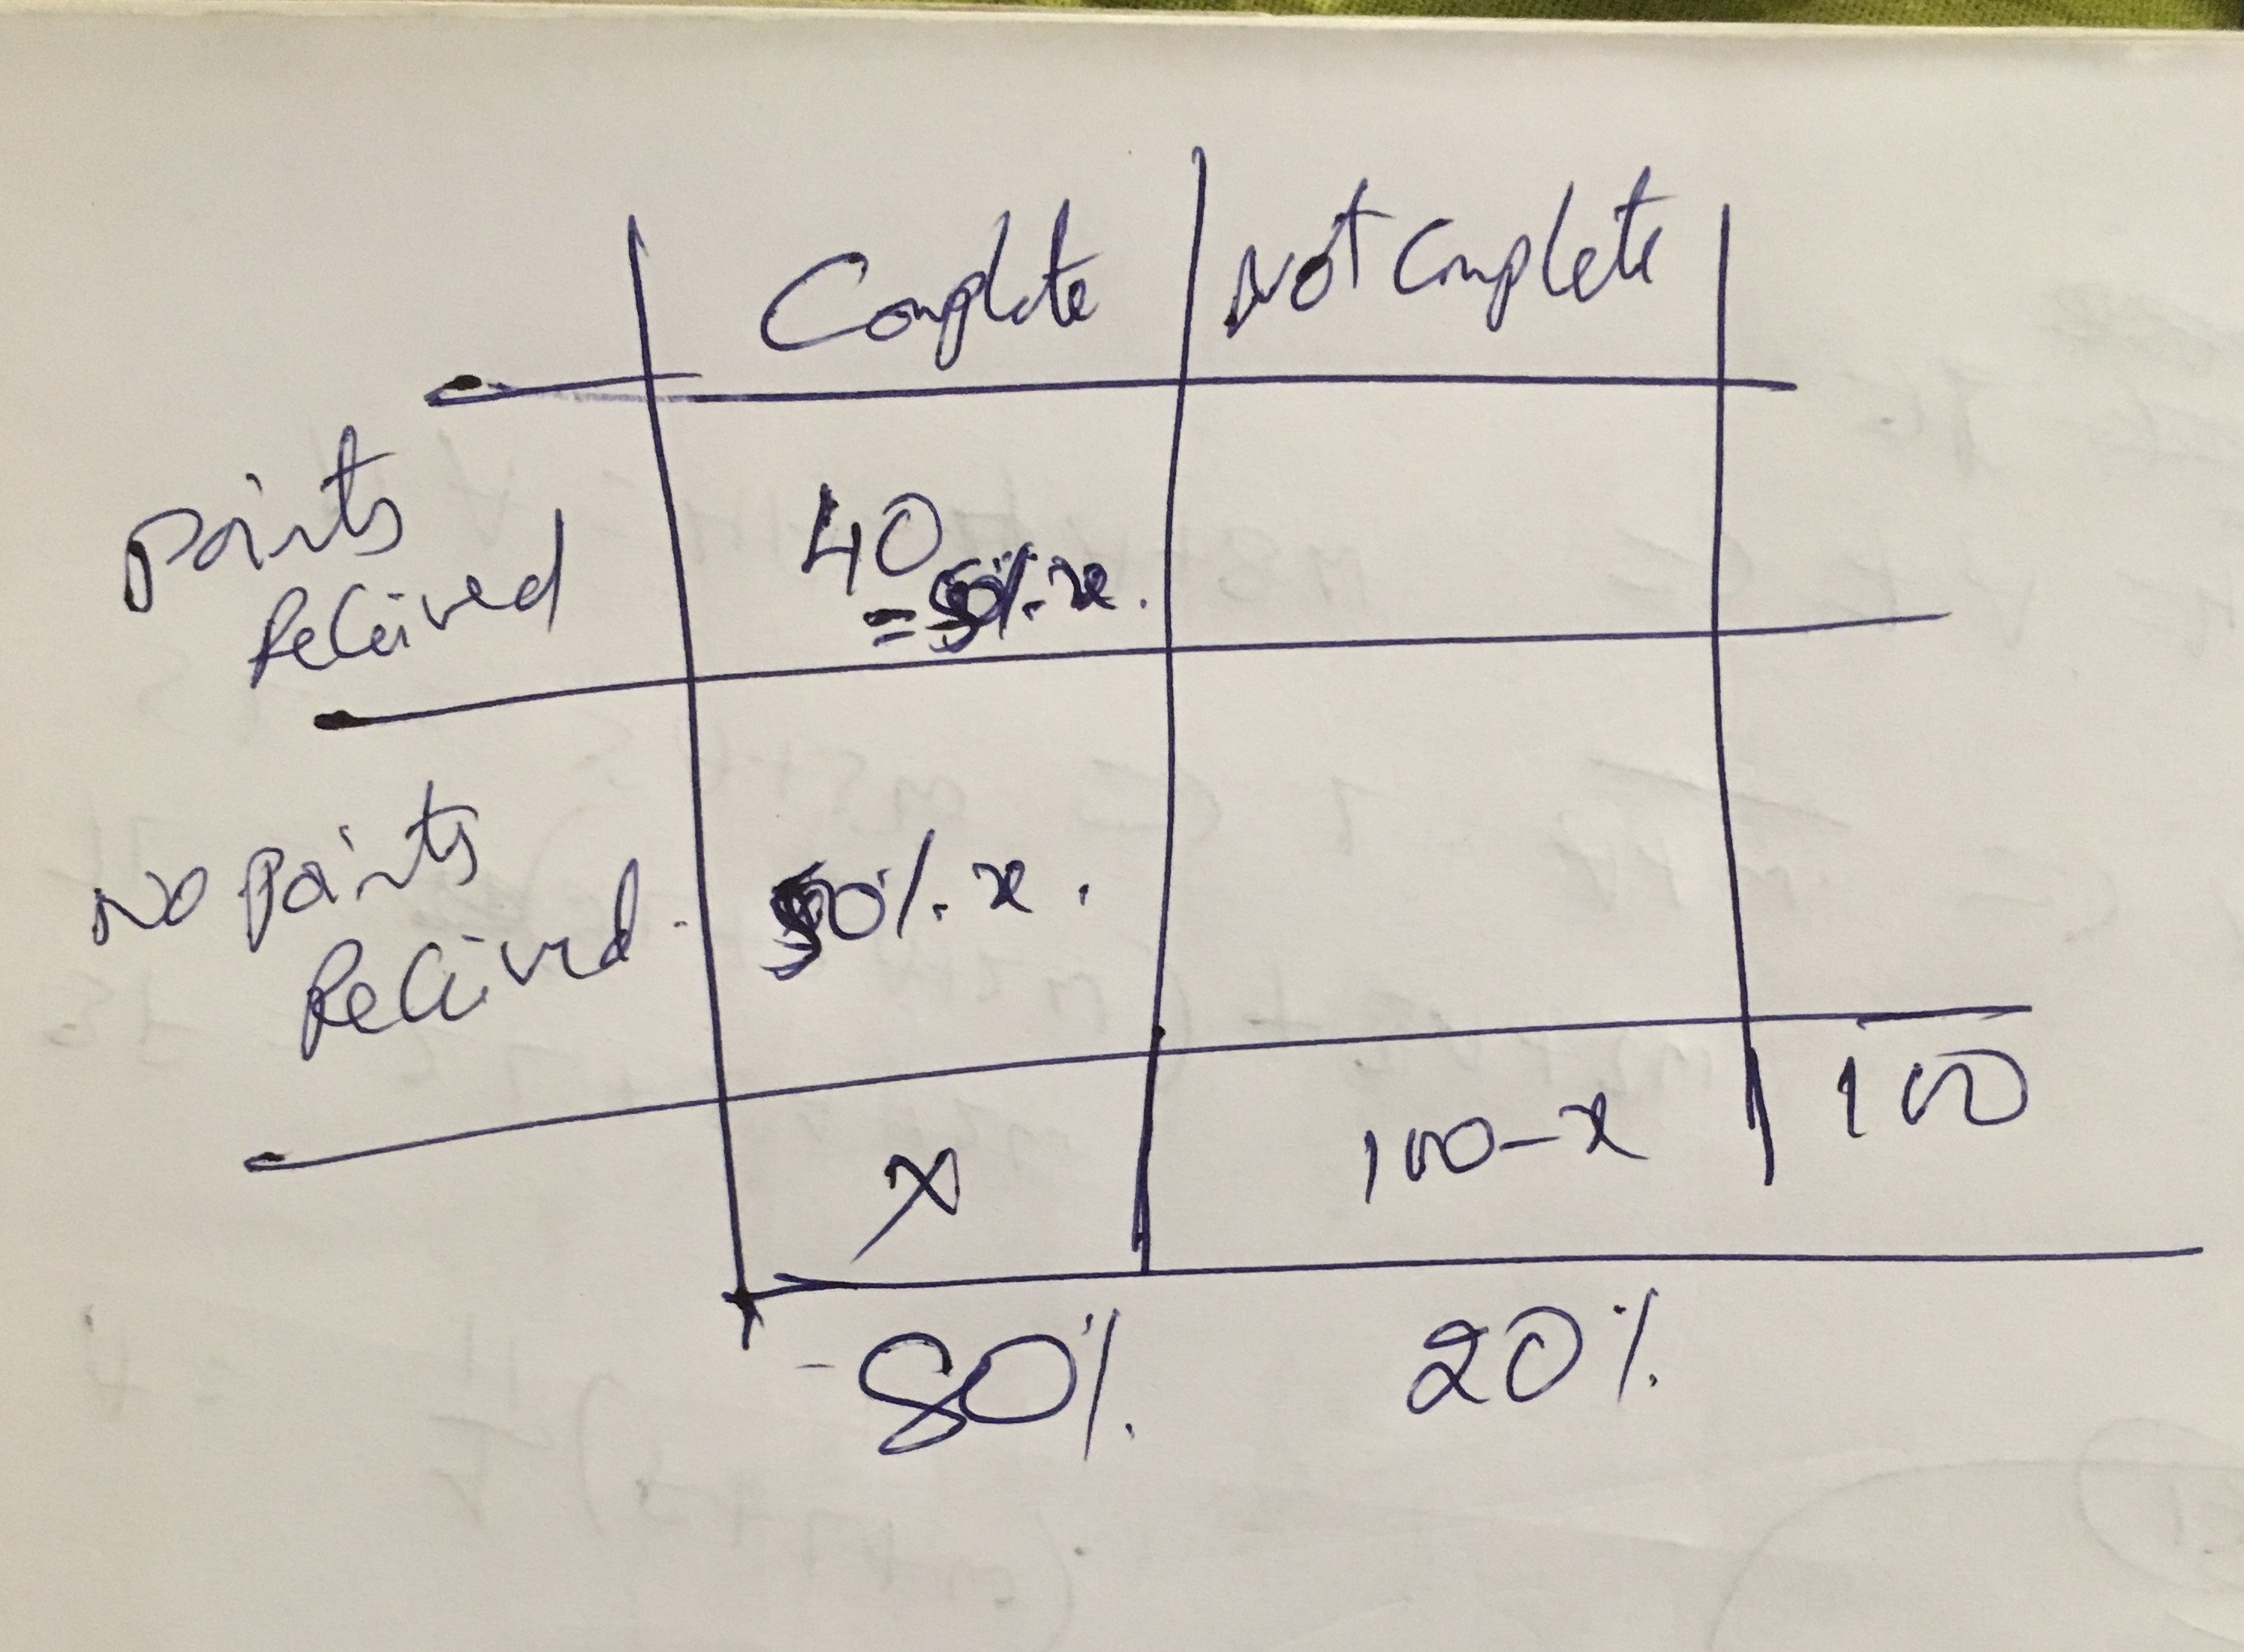 Complete Not Complete
Points
Received
40
= 50%. x.
No Points
Received.
50%. x.
x 100-x 100
80% 20%